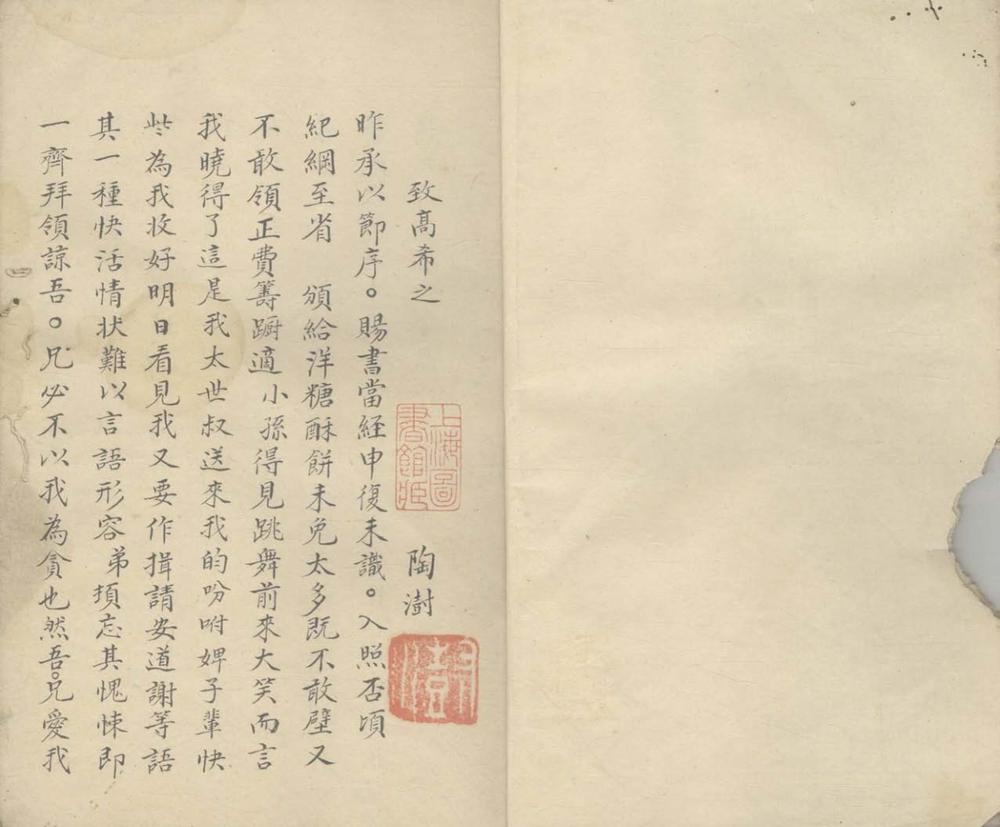 致高希之
陶澍
上海圖書館藏
昨承以節序。賜書當経申復未識。入照否頃
紀綱至省　頒給洋糖酥餅未免太多既不敢璧又
不敢領正費籌蹰適小孫得見跳舞前來大笑而言
我曉得了這是我太世叔送來我的吩咐婢子輩快
些為我收好明日看見我又要作揖請安道謝等語
其一種快活情状難以言語形容弟頓忘其愧悚即
一齊拜領諒吾。兄必不以我為貪也然吾。兄愛我